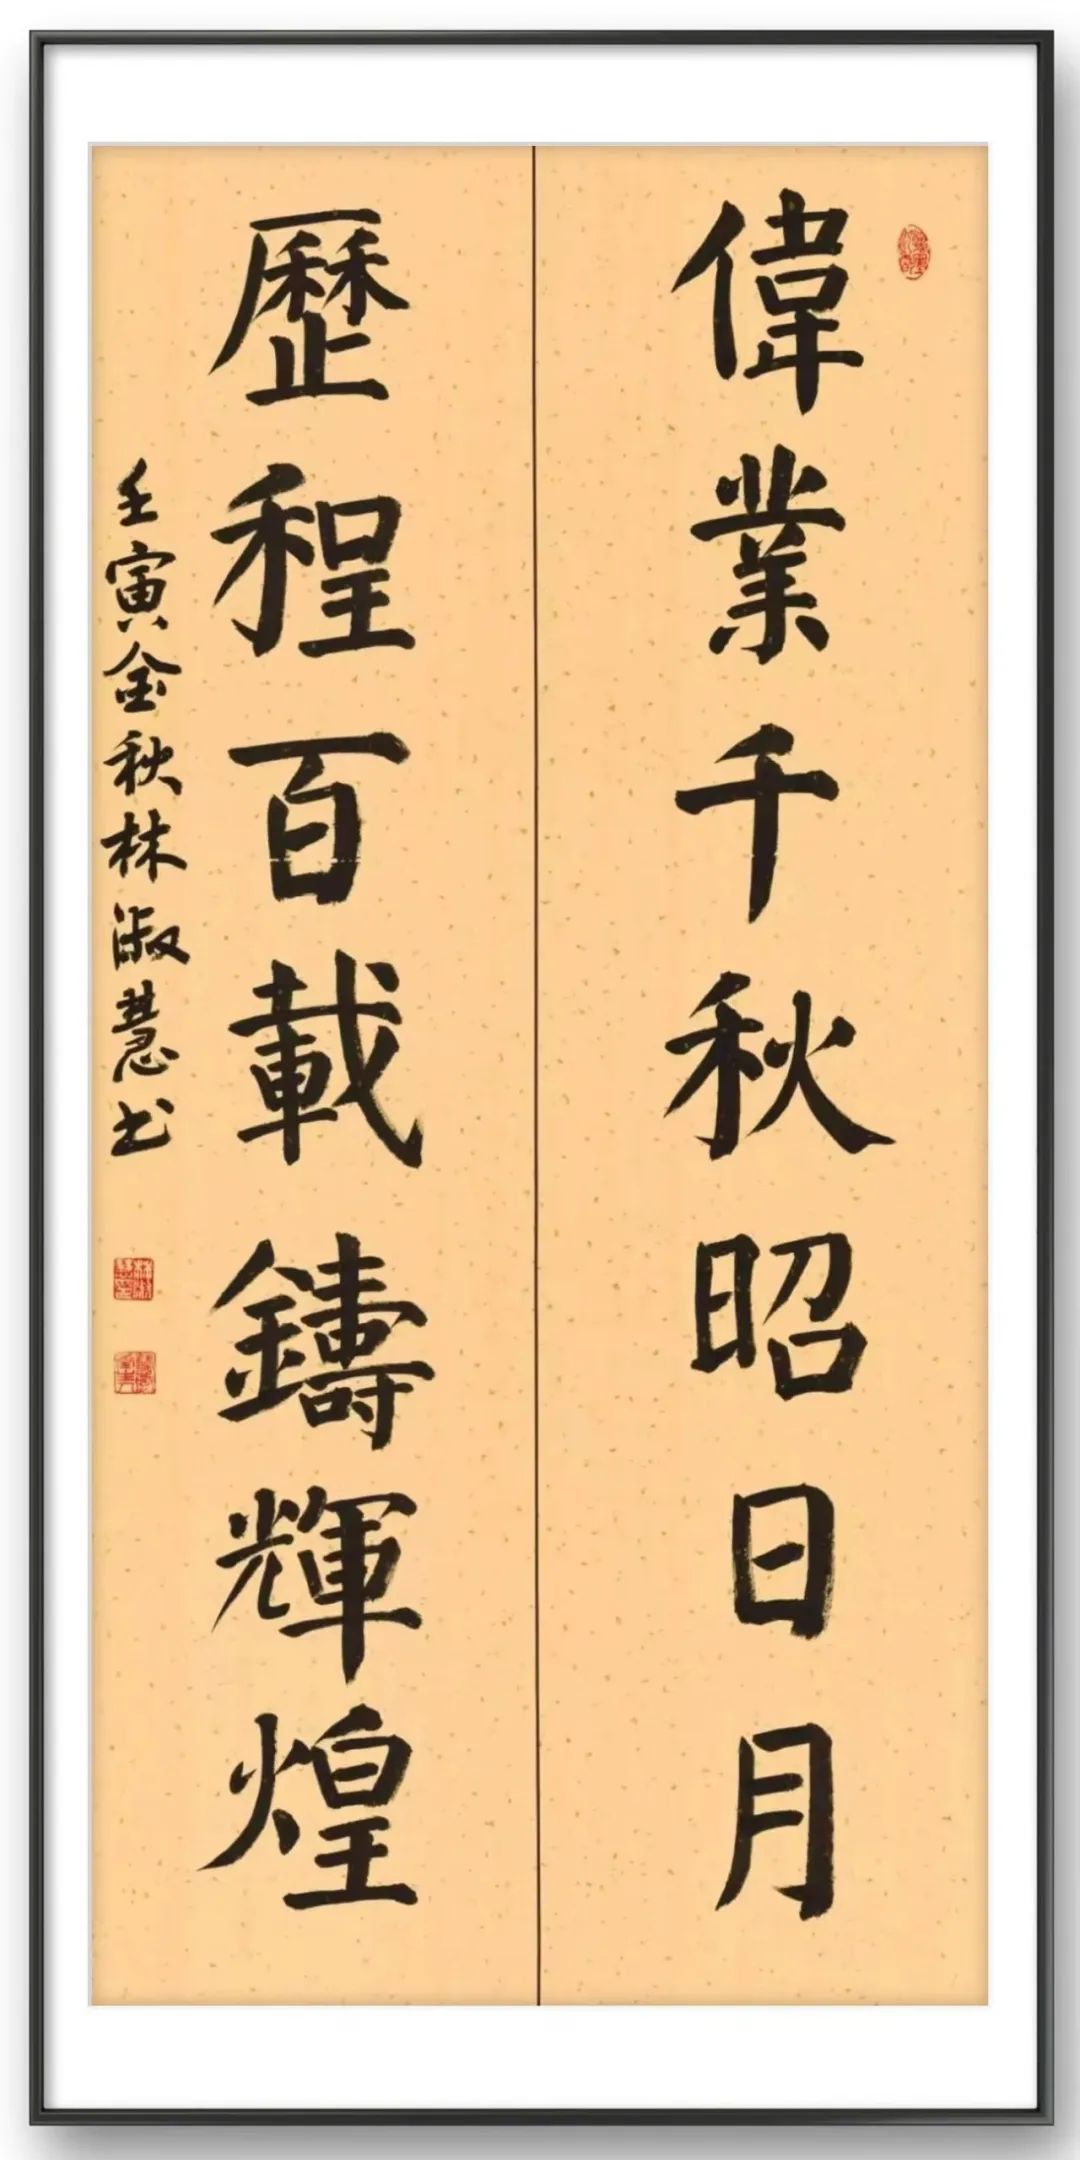 偉業千秋昭日月
歷程百載鑄輝煌
壬寅金秋林淑慧书